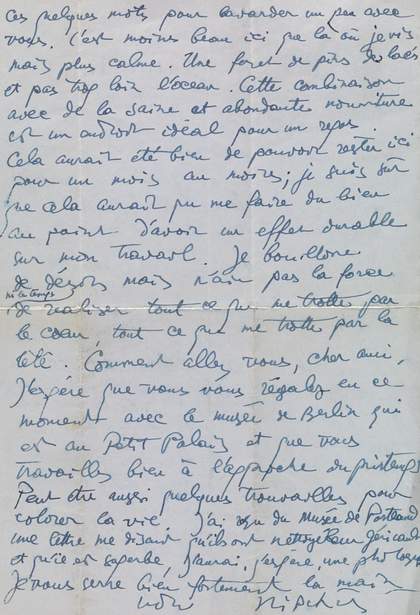 ces quelques mots pour bavarder un peu avec
vous. C'est moins beau ici que là où je vis
mais plus calme. Une foret de pins, des lacs
et pas trop loin l'ocean. Cette combinaison
avec de la saine et abondante nourriture
est un endroit idéal pour un repos.
Cela aurait été bien de pouvoir rester ici
pour un mois au moins; je suis sûr
que cela aurait pu me faire du bien
au point d'avoir un effet durable
sur mon travail. Je bouillone
de désirs mais n'ai pas la force
ni le temps
de realiser tout ce que me trotte par
le coeur, tout ce que me trotte par la
tête. Comment allez vous, cher ami,
J'espère que vous vous régalez en ce
moment avec le musée de Berlin qui
est au Petit Palais et que vous
travaillez bien à l'approche du printemps
Peut etre aussi quelques trouvailles pour
colorer la vie. J'ai reçu du Musée de Portland
une lettre me disant qu'ils ont nettoyé leur Géricault
et qu'il est superbe, j'aurai, j'espère, une photo
Je vous serre bien fortement la main
votre Lipchitz